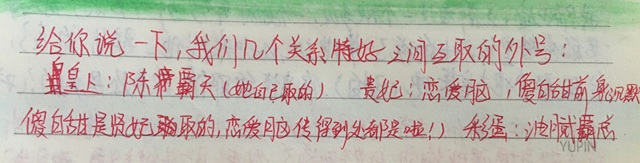 给你说一下,我们几个关系特好之间互取的外号:
皇上:陈霸天(她自己取的) 贵妃:恋爱脑,傻白甜前身沉默
傻白甜是贤妃取的,恋爱脑传得到处都是啦!) 彩蛋:油腻霸总
YUPIN